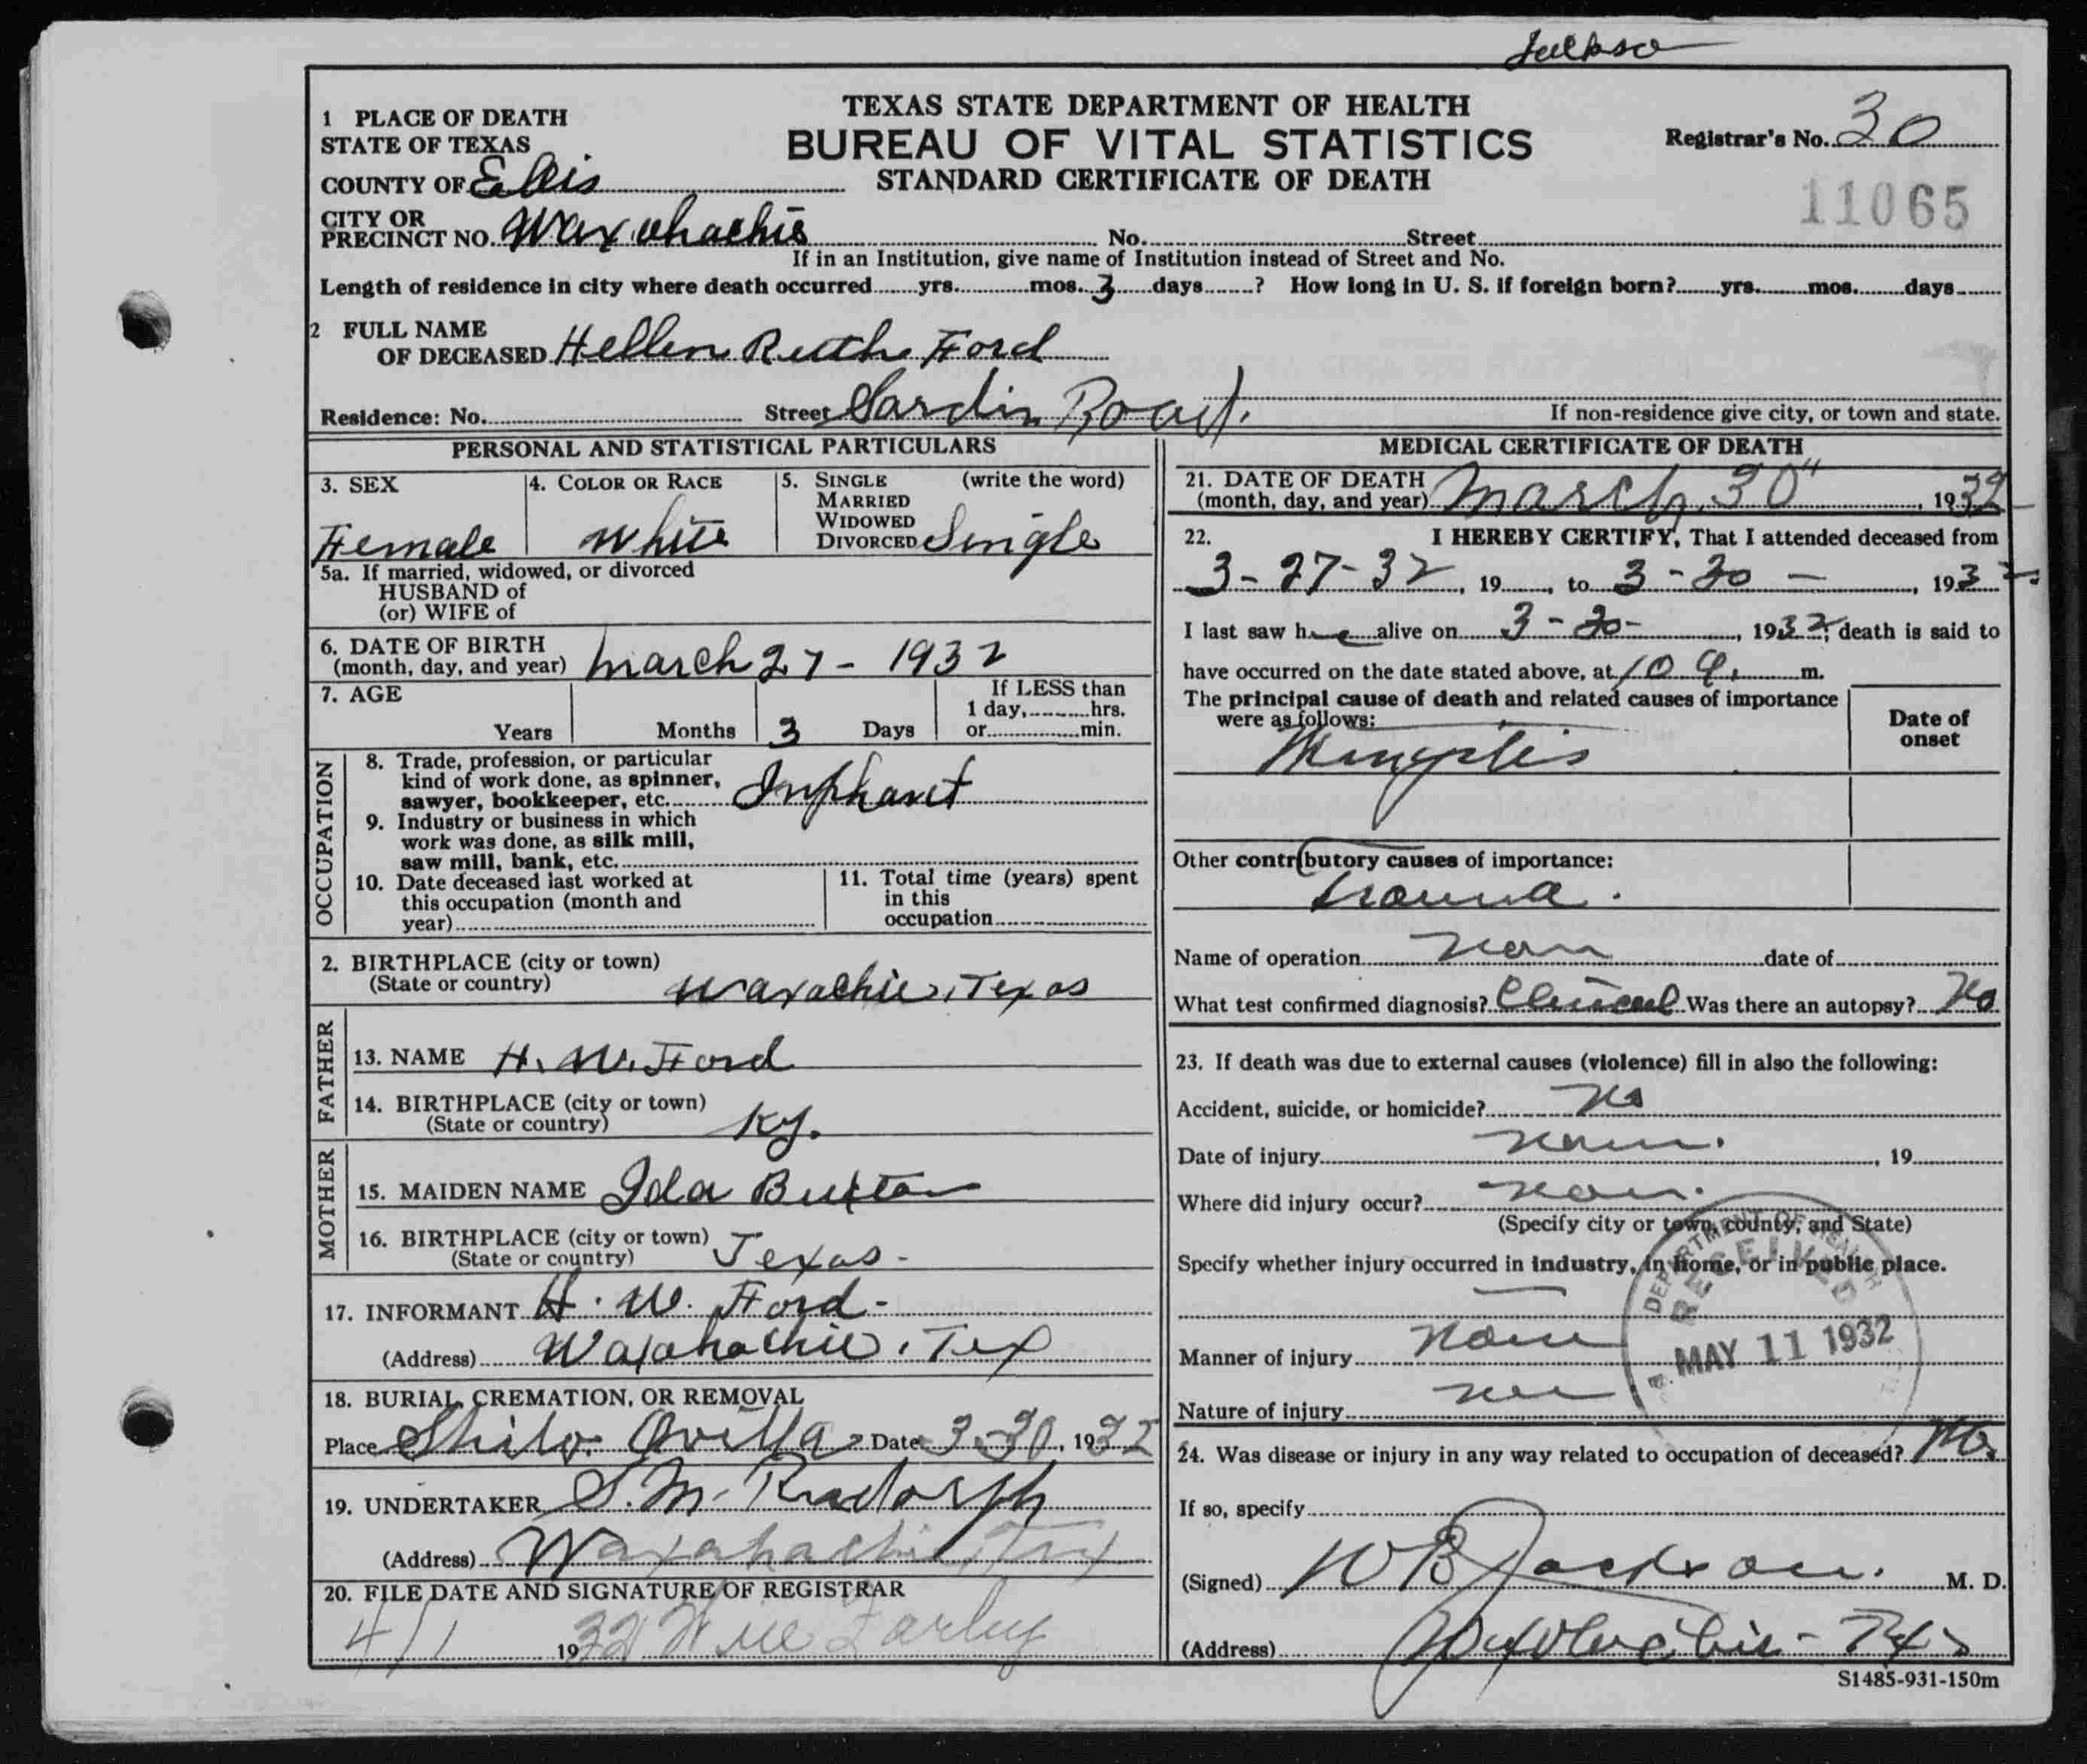 TEXAS STATE DEPARTMENT OF HEALTH
BUREAU OF VITAL STATISTICS
STANDARD CERTIFICATE OF DEATH
Registrar's No. 30
11065
1 PLACE OF DEATH
STATE OF TEXAS
COUNTY OF Ellis
CITY OR
PRECINCT NO. Waxahachie No. Street
If in an Institution, give name of Institution instead of Street and No.
Length of residence in city where death occurred yrs. mos. 3 days ? How long in U. S. if foreign born? yrs. mos. days
2 FULL NAME
OF DECEASED Hellen Ruth Ford
Residence: No. Street Sardis Road. If non-residence give city, or town and state.
PERSONAL AND STATISTICAL PARTICULARS
3. SEX
Female
4. COLOR OR RACE
White
5. SINGLE (write the word)
MARRIED
WIDOWED
DIVORCED Single
5a. If married, widowed, or divorced
HUSBAND of
(or) WIFE of
6. DATE OF BIRTH
(month, day, and year) March 27 - 1932
7. AGE
Years Months 3 Days
If LESS than
1 day, hrs.
or min.
OCCUPATION
8. Trade, profession, or particular
kind of work done, as spinner,
sawyer, bookkeeper, etc. Inphant
9. Industry or business in which
work was done, as silk mill,
saw mill, bank, etc.
10. Date deceased last worked at
this occupation (month and
year)
11. Total time (years) spent
in this
occupation
2. BIRTHPLACE (city or town)
(State or country) Waxachie, Texas
FATHER
13. NAME H. W. Ford
14. BIRTHPLACE (city or town)
(State or country) Ky.
MOTHER
15. MAIDEN NAME Ida
16. BIRTHPLACE (city or town)
(State or country) Texas -
17. INFORMANT H. W. Ford -
(Address) Waxahachie, Tex
18. BURIAL, CREMATION, OR REMOVAL
Place Shilo. Ovilla Date 3-30, 1932
19. UNDERTAKER S. M.
(Address) Waxahachie, Tex
20. FILE DATE AND SIGNATURE OF REGISTRAR
4/1 1932 Will
MEDICAL CERTIFICATE OF DEATH
21. DATE OF DEATH
(month, day, and year) March 30", 1932
22. I HEREBY CERTIFY, That I attended deceased from
3-27-32, 19 , to 3-30 -, 1932
I last saw h alive on 3-30-, 1932, death is said to
have occurred on the date stated above, at 10 a. m.
The principal cause of death and related causes of importance
were as follows:
Date of
onset
Other contributory causes of importance:
Name of operation date of
What test confirmed diagnosis? Clinical Was there an autopsy? No
23. If death was due to external causes (violence) fill in also the following:
Accident, suicide, or homicide? No
Date of injury , 19
Where did injury occur?
(Specify city or town, county, and State)
Specify whether injury occurred in industry, in home, or in public place.
Manner of injury None
Nature of injury
DEPARTMENT OF HEALTH
RECEIVED
MAY 11 1932
24. Was disease or injury in any way related to occupation of deceased? No.
If so, specify
(Signed) W B Jackson. M. D.
(Address) Waxahachie - Tex
S1485-931-150m